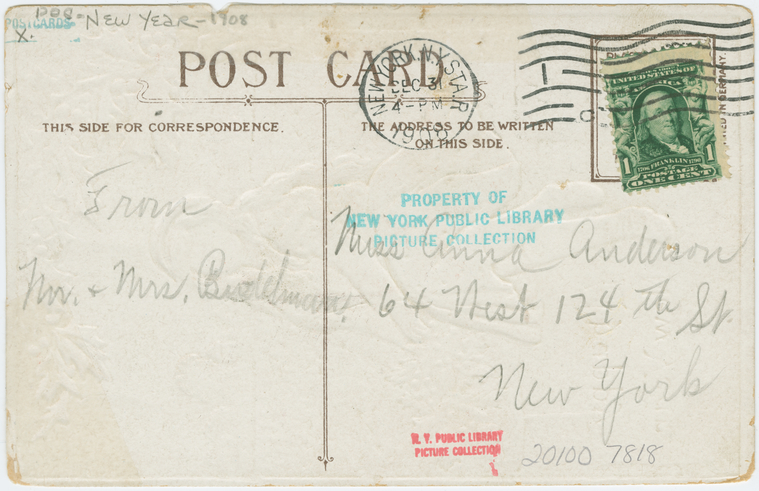 POSTCARDS - New Year - 1908
X.
POST CARD
NEW YORK, N.Y. STA. R
DEC 31
4 - PM
1908
UNITED STATES OF
AMERICA
1 FRANKLIN 1
POSTAGE
ONE CENT
THIS SIDE FOR CORRESPONDENCE.
THE ADDRESS TO BE WRITTEN
ON THIS SIDE.
From
Mr. & Mrs.
PROPERTY OF
NEW YORK PUBLIC LIBRARY
PICTURE COLLECTION
Miss Anna Anderson
64 West 124 th St.
New York
N. Y. PUBLIC LIBRARY
PICTURE COLLECTION
20100 7818